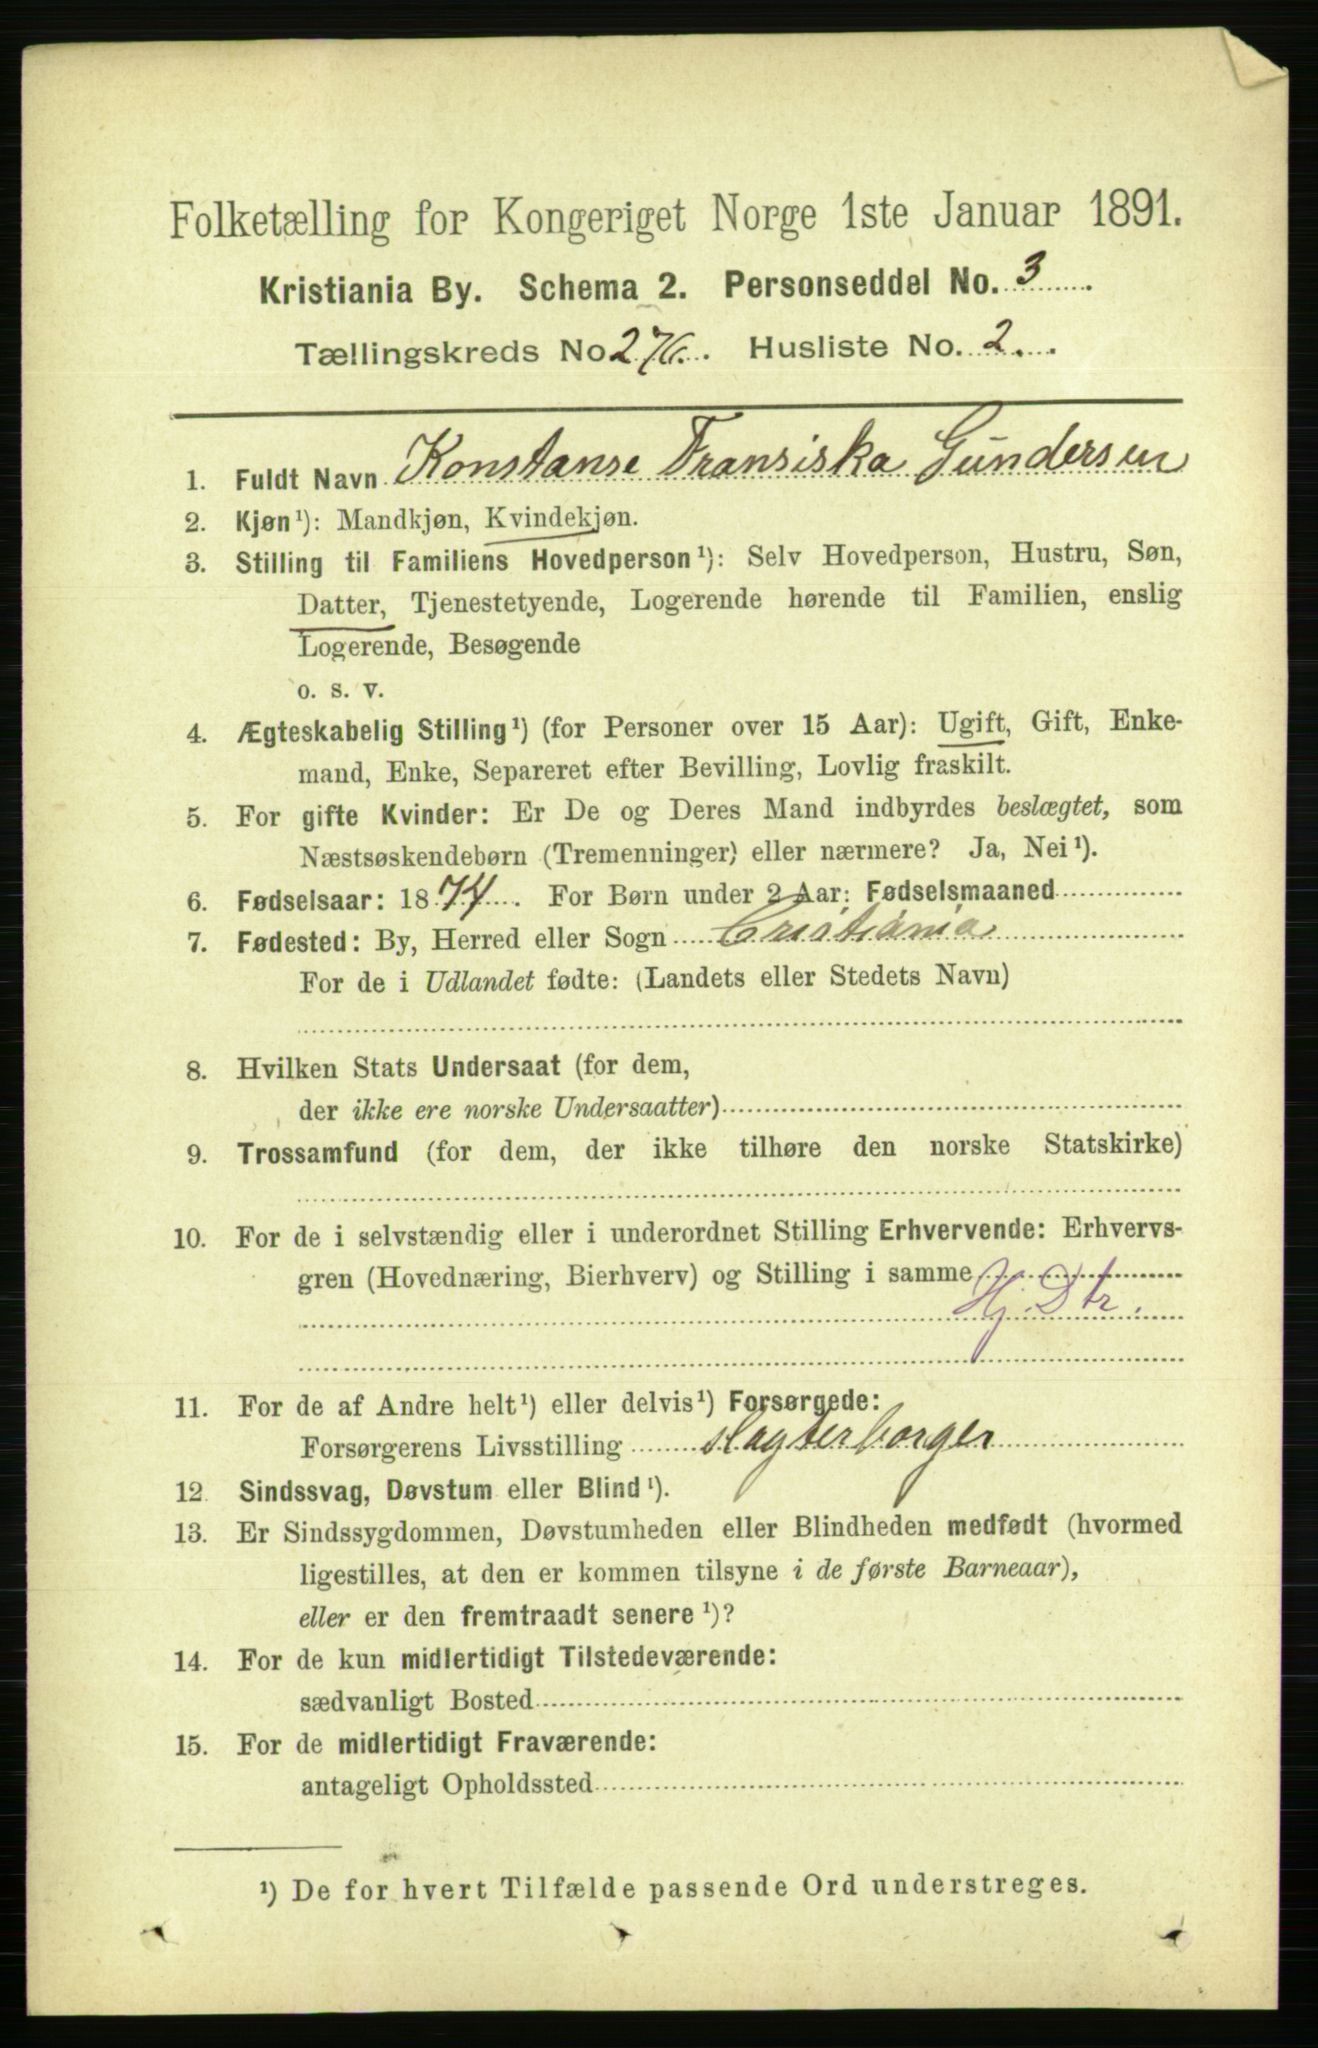 Folketælling for Kongeriget Norge 1ste Januar 1891.
Kristiania By. Schema 2. Personseddel No. 3
Tællingskreds No 276. Husliste No. 2.
1. Fuldt Navn Konstanse Fransiska Gundersen
2. Kjøn¹): Mandkjøn, Kvindekjøn.
3. Stilling til Familiens Hovedperson¹): Selv Hovedperson, Hustru, Søn,
Datter, Tjenestetyende, Logerende hørende til Familien, enslig
Logerende, Besøgende
o. s. v.
4. Ægteskabelig Stilling¹) (for Personer over 15 Aar): Ugift, Gift, Enke-
mand, Enke, Separeret efter Bevilling, Lovlig fraskilt.
5. For gifte Kvinder: Er De og Deres Mand indbyrdes beslægtet, som
Næstsøskendebørn (Tremenninger) eller nærmere? Ja, Nei¹).
6. Fødselsaar: 1874. For Børn under 2 Aar: Fødselsmaaned
7. Fødested: By, Herred eller Sogn Cristiania
For de i Udlandet fødte: (Landets eller Stedets Navn)
8. Hvilken Stats Undersaat (for dem,
der ikke ere norske Undersaatter)
9. Trossamfund (for dem, der ikke tilhøre den norske Statskirke)
10. For de i selvstændig eller i underordnet Stilling Erhvervende: Erhvervs-
gren (Hovednæring, Bierhverv) og Stilling i samme
Hj. Dtr.
11. For de af Andre helt¹) eller delvis¹) Forsørgede:
Forsørgerens Livsstilling slagterborger
12. Sindssvag, Døvstum eller Blind¹).
13. Er Sindssygdommen, Døvstumheden eller Blindheden medfødt (hvormed
ligestilles, at den er kommen tilsyne i de første Barneaar),
eller er den fremtraadt senere¹)?
14. For de kun midlertidigt Tilstedeværende:
sædvanligt Bosted
15. For de midlertidigt Fraværende:
antageligt Opholdssted
¹) De for hvert Tilfælde passende Ord understreges.